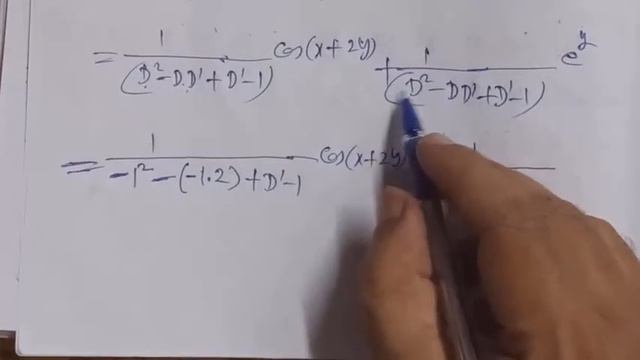 = 1/(D²-DD'+D'-1) cos(x+2y) + 1/(D²-DD'+D'-1) e^y
= 1/(-1²-(-1.2)+D'-1) cos(x+2y) 1